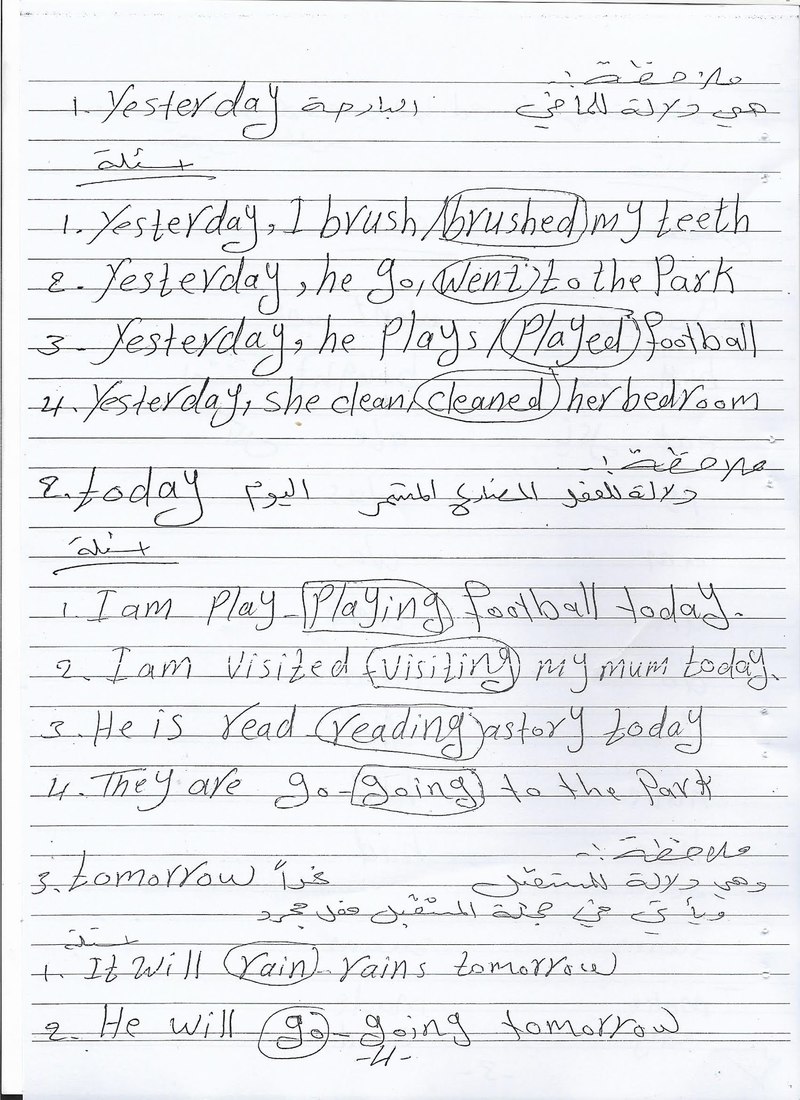 ملاحظة :-
1. Yesterday البارحة هي دلالة للماضي
اسئلة
1. Yesterday, I brush / brushed my teeth
2. Yesterday, he go, went to the Park
3. Yesterday, he Plays / Played football
4. Yesterday, she clean, cleaned her bedroom
ملاحظة :-
2. today اليوم دلالة للفعل المضارع المستمر
اسئلة
1. I am Play - Playing football today.
2. I am visited - visiting my mum today.
3. He is read reading astory today
4. They are go - going to the Park
ملاحظة :-
3. tomorrow غداً وهي دلالة للمستقبل
ويأتي في جملة المستقبل فعل مجرد
اسئلة
1. It will rain - rains tomorrow
2. He will go - going tomorrow
-4-